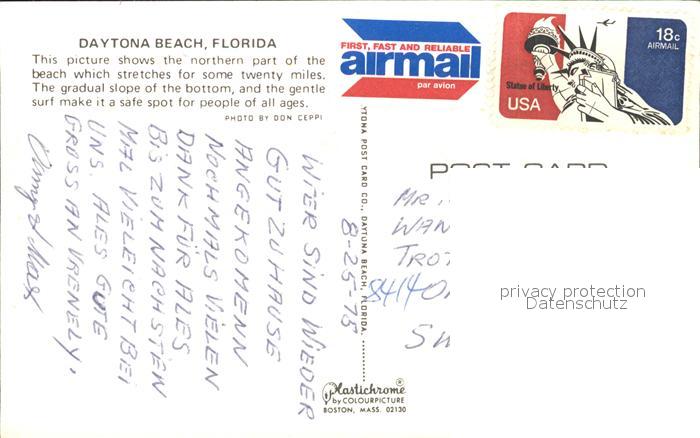 DAYTONA BEACH, FLORIDA
This picture shows the northern part of the
beach which stretches for some twenty miles.
The gradual slope of the bottom, and the gentle
surf make it a safe spot for people of all ages.
PHOTO BY DON CEPPI
FIRST, FAST AND RELIABLE
airmail
par avion
18c
AIRMAIL
Statue of Liberty
USA
POST CARD
WIER SIND WIEDER
GUT ZUHAUSE
ANGEKOMENN
NOCHMALS VIELEN
DANK FÜR ALES
BIS ZUM NACHSTEN
MAL VIELEICHT BEI
UNS. ALES GUTE
GROSS AN VRENELY.
8-25-75
YTONA POST CARD CO., DAYTONA BEACH, FLORIDA.
MR.
WAN
TROT
8414
SW
privacy protection
Datenschutz
Plastichrome®
by COLOURPICTURE
BOSTON, MASS. 02130